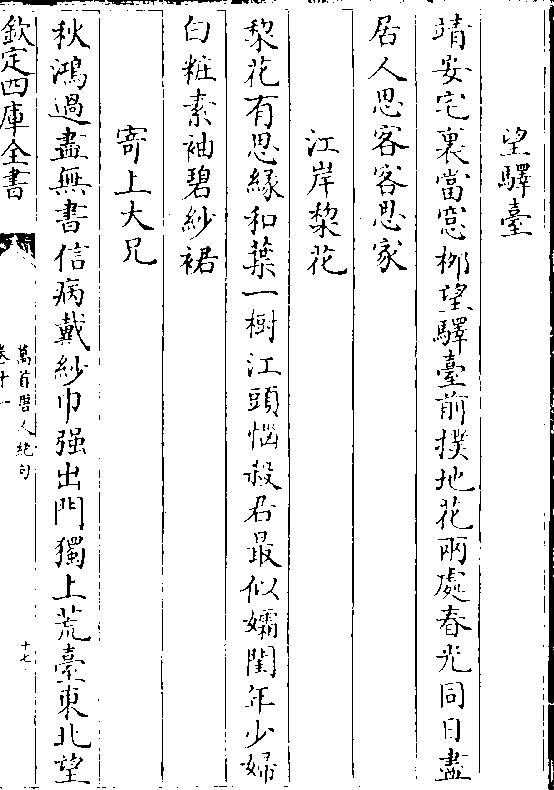 望驛臺
靖安宅裏當窓栁望驛臺前撲地花兩處春光同日盡
居人思客客思家
江岸棃花
棃花有思縁和葉一樹江頭惱殺君最似孀閨年少婦
白粧素袖碧紗裙
寄上大兄
秋鴻過盡無書信病戴紗巾强出門獨上荒臺東北望
欽定四庫全書
萬首唐人絶句
卷十一
十七